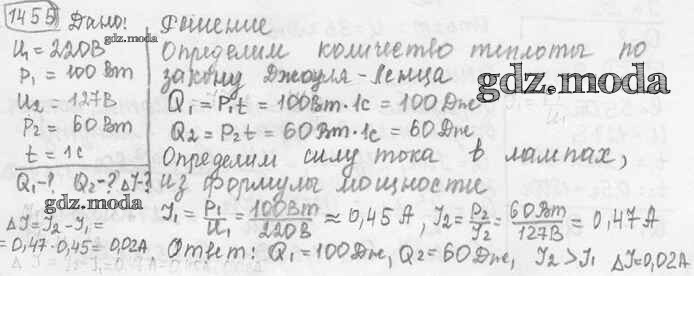 1455 Дано:
U₁ = 220В
P₁ = 100 Вт
U₂ = 127В
P₂ = 60 Вт
t = 1с
Q₁-? Q₂-? ΔI-?
ΔI = I₂ - I₁ =
= 0,47 - 0,45 = 0,02А
Решение
Определим количество теплоты по
закону Джоуля-Ленца
Q₁ = P₁t = 100Вт·1с = 100 Дж
Q₂ = P₂t = 60Вт·1с = 60 Дж
Определим силу тока в лампах,
из формулы мощности
I₁ = P₁/U₁ = 100Вт/220В ≈ 0,45 А, I₂ = P₂/I₂ = 60Вт/127В = 0,47А
Ответ: Q₁ = 100 Дж, Q₂ = 60 Дж, I₂ > I₁ ΔI = 0,02А
gdz.moda
gdz.moda
gdz.moda